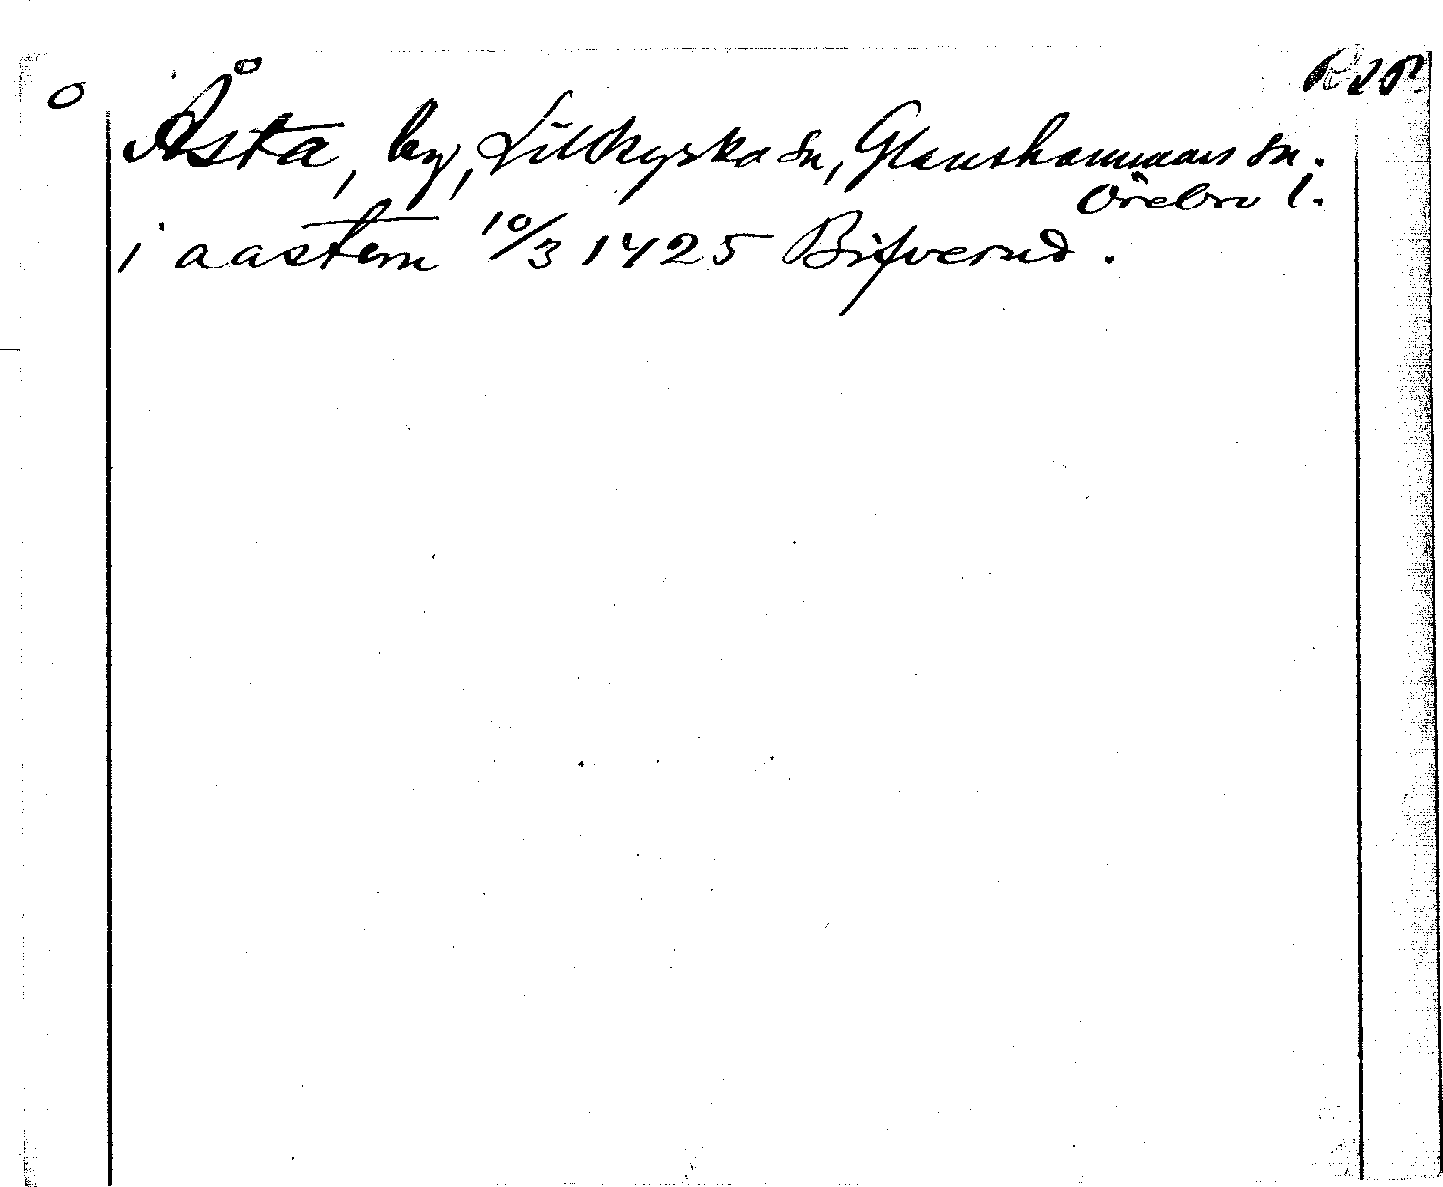 Åsta, by, Lillkyrka sn, Glanshammars hd.
Örebro l.
i aastem 10/3 1425 Bifverud.